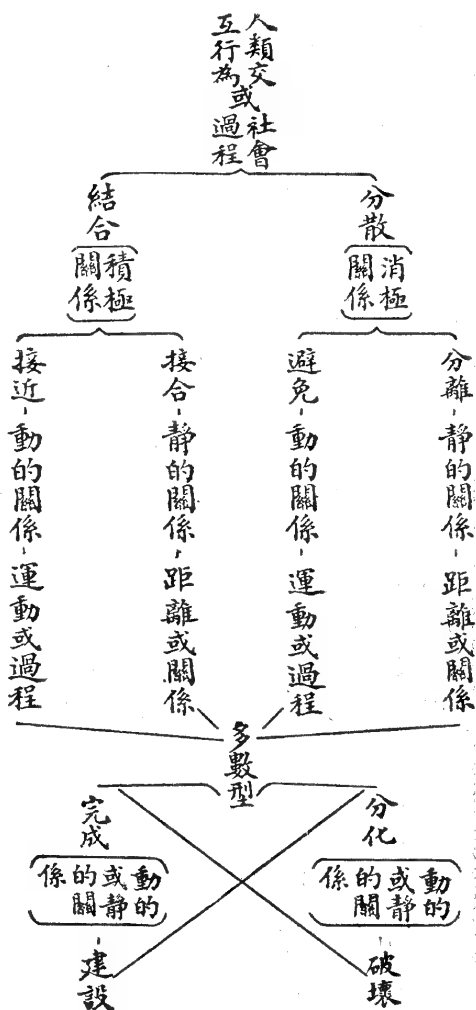 人類交
互行為
或
社會
過程
分散
消極
關係
結合
積極
關係
分離-靜的關係-距離或關係
避免-動的關係-運動或過程
接合-靜的關係-距離或關係
接近-動的關係-運動或過程
多數型
分化
動的
或靜
的關
係
破壞
完成
動的
或靜
的關
係
-建設